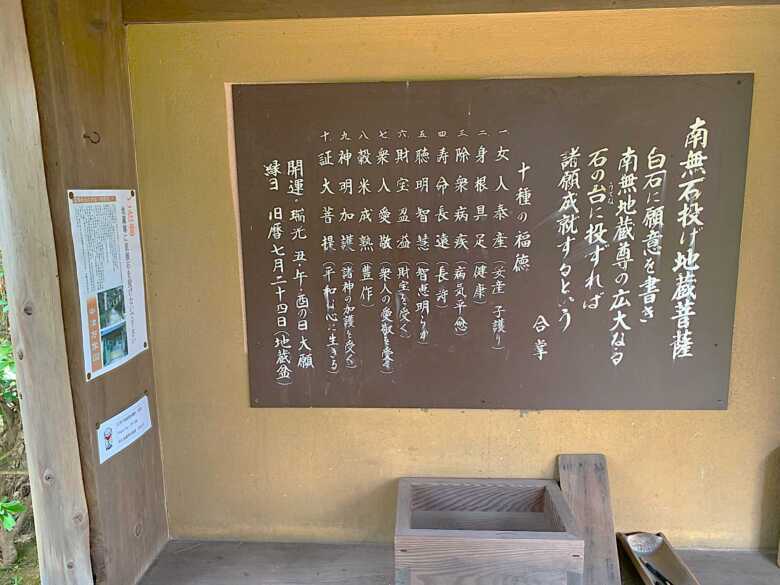 南無石投げ地蔵菩薩
白石に願意を書き
南無地蔵尊の広大なる
石の台に投ずれば
諸願成就するという
合掌
十種の福徳
一 女人泰産（安産 子護り）
二 身根具足（健康）
三 除衆病疾（病気平癒）
四 寿命長遠（長寿）
五 聰明智慧（智恵明らか）
六 財宝盈益（財宝を受く）
七 衆人愛敬（衆人の愛敬を受く）
八 穀米成熟（豊作）
九 神明加護（諸神の加護を受く）
十 証大菩提（平和な心に生きる）
開運・瑞光 丑・午・酉の日大願
縁日 旧暦七月二十四日（地蔵盆）
ご注意